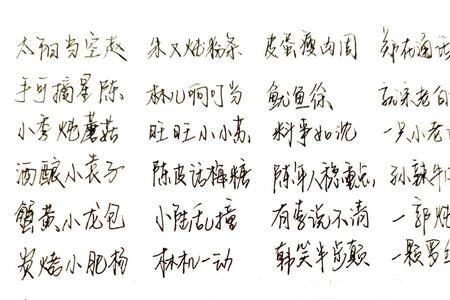 太阳当空赵 朱又炖粉条 皮蛋瘦肉周 郑在通话
手可摘星陈 林儿响叮当 鱿鱼徐
小李炖蘑菇 旺旺小小苏 料事如沈 一只小老
酒酿小袁子 陈皮话梅糖 陈年人稳重点 孙辣牛
蟹黄小龙包 小陆乱撞 有李说不清 一郭炖
炭烤小肥杨 林机一动 韩笑半步颠 一颗罗